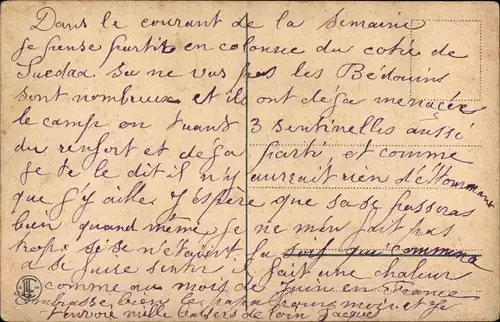 Dans le courant de la Semaine
je pense partir en colonne du coté de
Suedaa sa ne vas pas les Bédouins
sont nombreux et ils ont deja menacée
le camp en tuant 3 sentinelles aussi
du renfort et deja parti et comme
je te le dit il n'y aurrait rien d'étonnant
que j'y aille j'espère que sa se passeras
bien quand même je ne m'en fait pas
trop si se n'etait la soif qui commence
a se faire sentir il fait une chaleur
comme au mois de Juin en France
Embrasse bien le papa pour moi et je
t'envoie mille baisers de loin Jacques